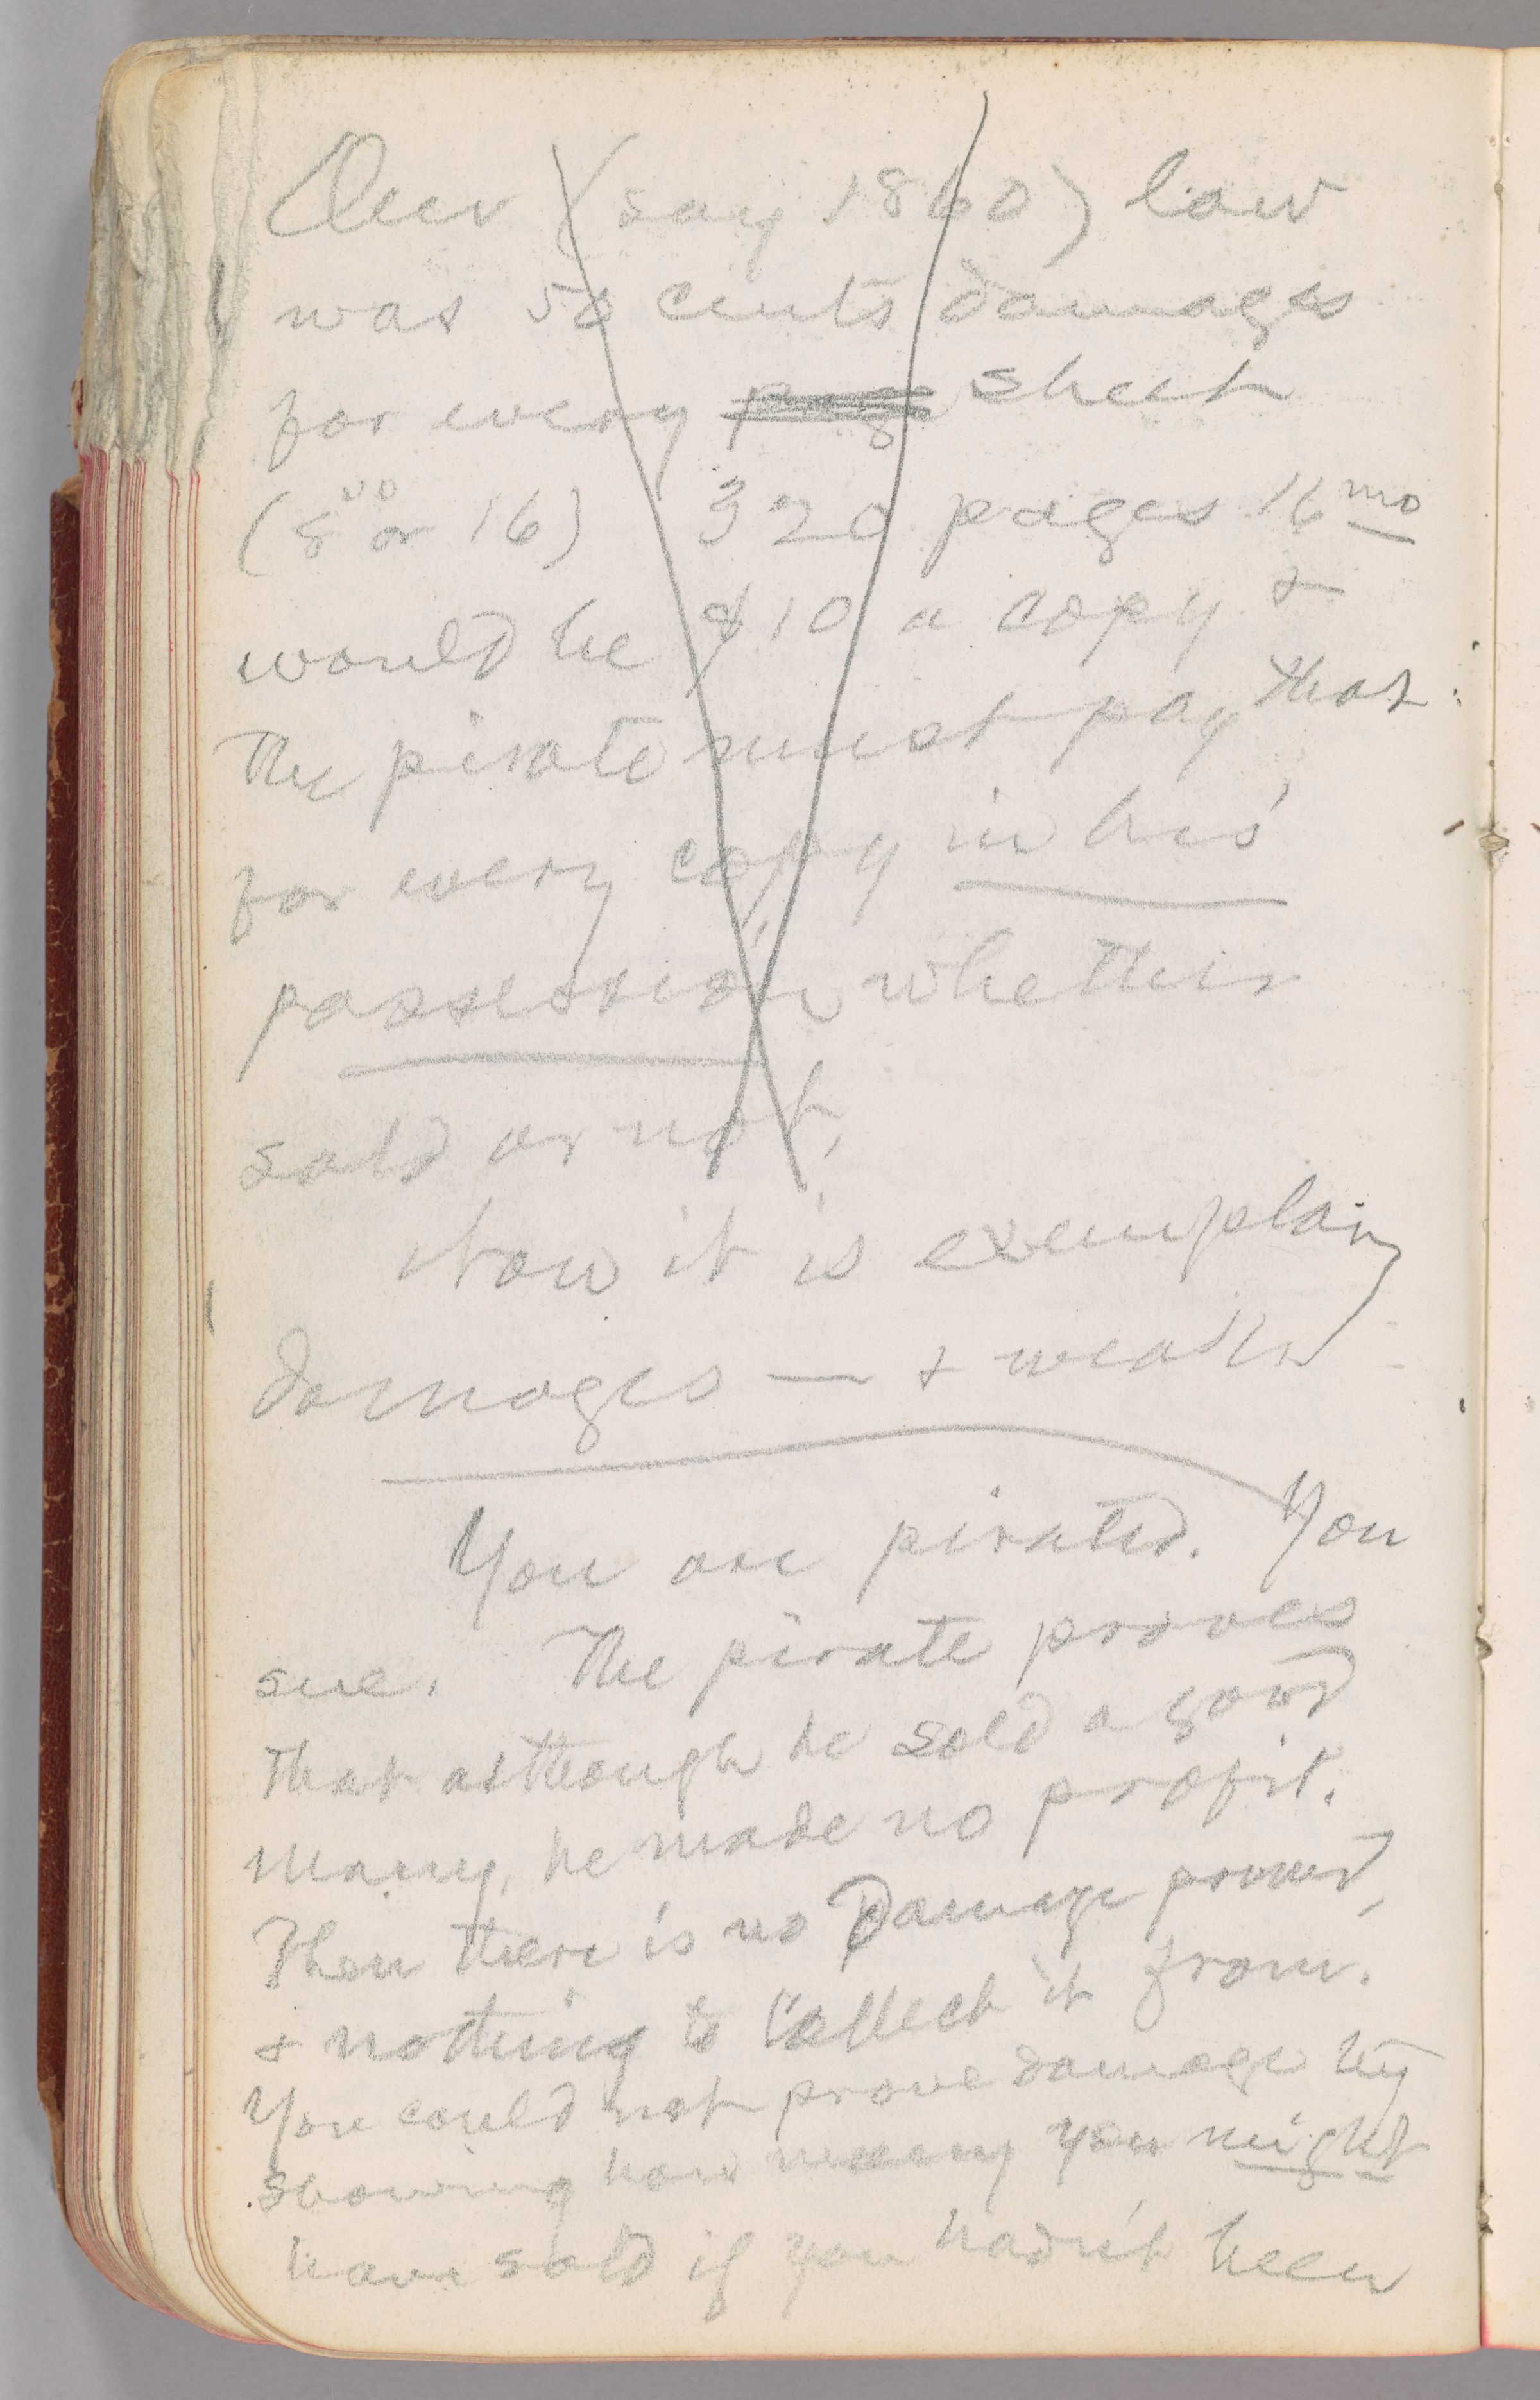 Our (say 1860) law
was 50 cents damages
for every page sheet
(8vo or 16) 320 pages 16mo
would be $10 a copy &
the pirate must pay that
for every copy in his
possession, whether
sold or not,
Now it is exemplary
damages — &
You are pirated. You
sue. The pirate proves
that although he sold a good
many, he made no profit.
Then there is no Damage proved,
& nothing to collect it from.
You could not prove damage by
showing how many you might
have sold if you hadn't been